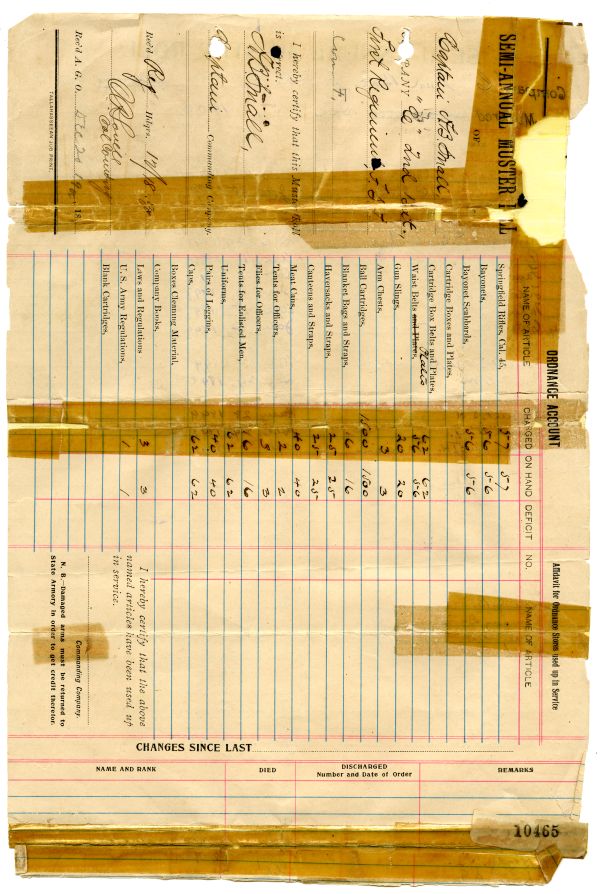 SEMI-ANNUAL MUSTER ROLL
OF
Captain A B Small
COMPANY "C" 2nd Bat.,
First Regiment, F. S. T.
I hereby certify that this Muster Roll
is correct.
A B Small,
Captain Commanding Company.
Rec'd Reg Hdqrs. 12/18
Rec'd A. G. O. Dec 20 18
TALLAHASSEEAN JOB PRINT.
ORDNANCE ACCOUNT
NAME OF ARTICLE CHARGED ON HAND DEFICIT
Springfield Rifles, Cal. 45, 57 57
Bayonets, 56 56
Bayonet Scabbards, 56 56
Cartridge Boxes and Plates,
Cartridge Box Belts and Plates, 62 62
Waist Belts and Plates, Plates 56 56
Gun Slings, 20 20
Arm Chests, 3 3
Ball Cartridges, 1500 1500
Blanket Bags and Straps, 16 16
Haversacks and Straps, 25 25
Canteens and Straps, 25 25
Meat Cans, 40 40
Tents for Officers, 2 2
Flies for Officers, 3 3
Tents for Enlisted Men, 16 16
Uniforms, 62 62
Pairs of Leggins, 40 40
Caps, 62 62
Boxes Cleaning Material,
Company Books,
Laws and Regulations 3 3
U. S. Army Regulations, 1 1
Blank Cartridges,
Affidavit for Ordnance Stores used up in Service
NO. NAME OF ARTICLE
I hereby certify that the above
named articles have been used up
in service.
Commanding Company.
N. B.—Damaged arms must be returned to
State Armory in order to get credit therefor.
CHANGES SINCE LAST
NAME AND RANK DIED DISCHARGED REMARKS
Number and Date of Order
10465